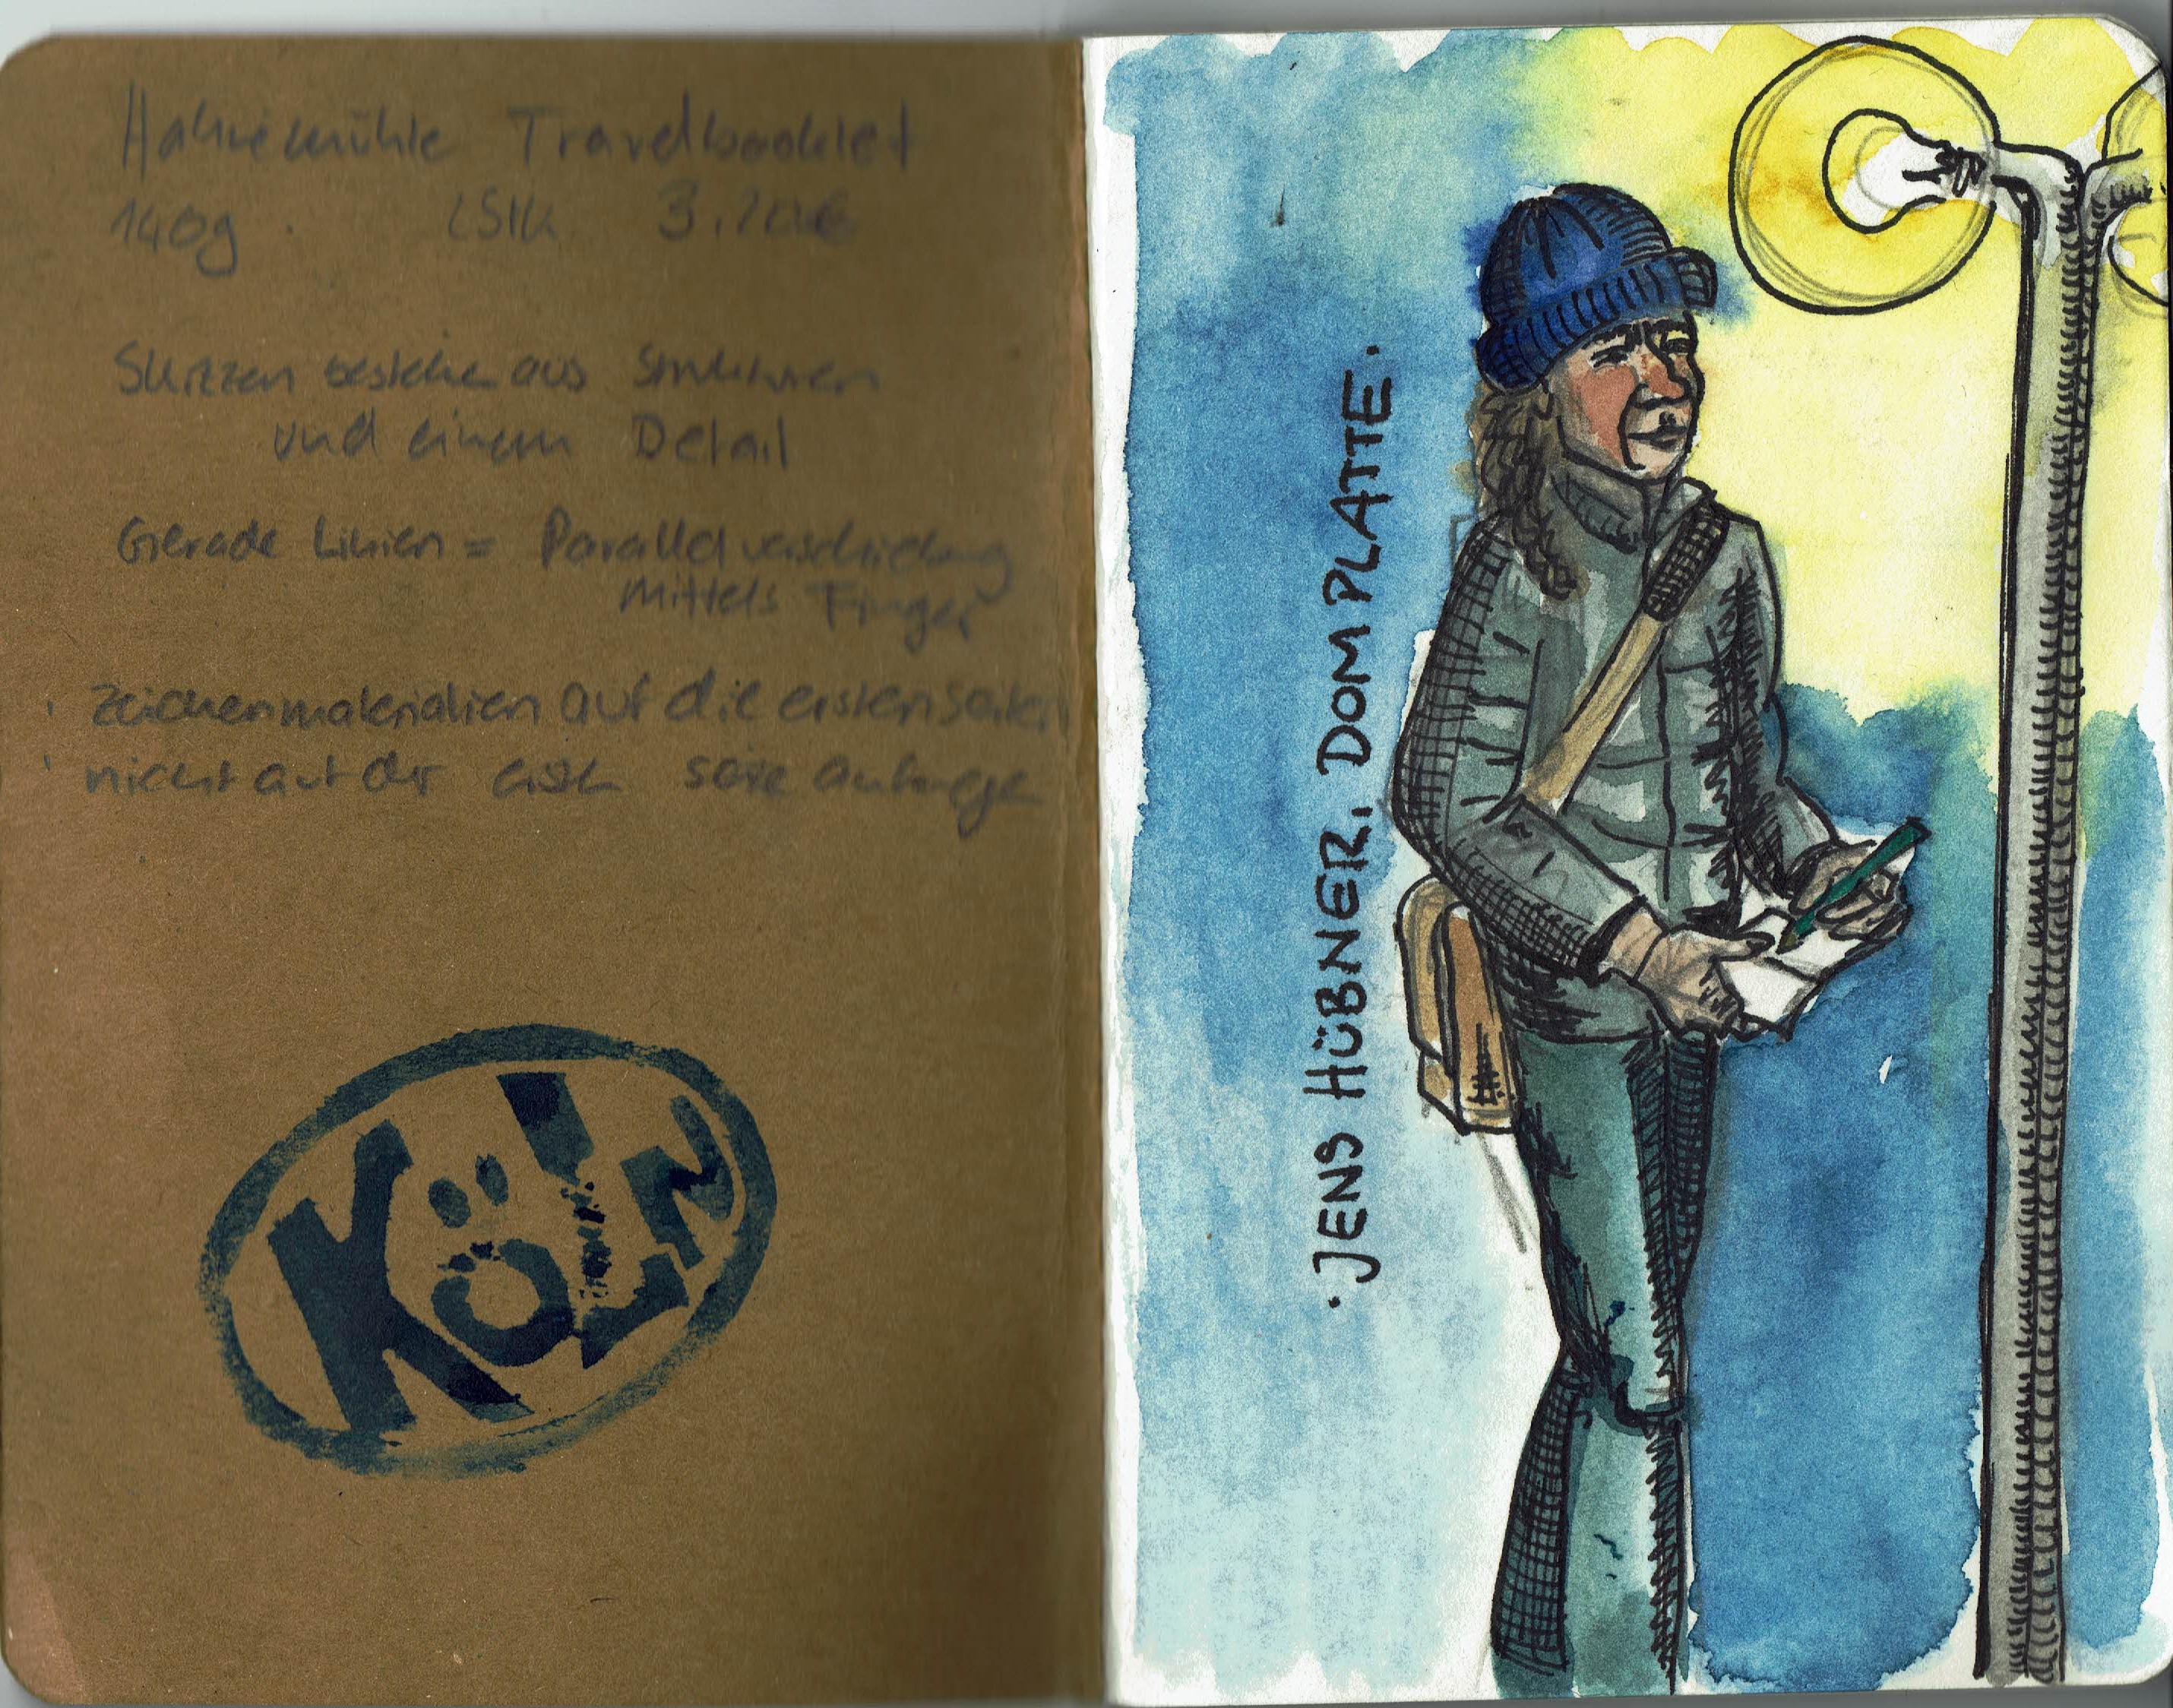 Hahnemühle Travelbooklet
140g 2Stk 3.20€
Skizzen bestehe aus Strukturen
und einem Detail
Gerade Linien = Parallelverschiebung
Mittels Finger
Zeichenmaterialien auf die ersten Seiten
nicht auf der ersten Seite anfangen
KÖLN
· JENS HÜBNER, DOMPLATTE ·